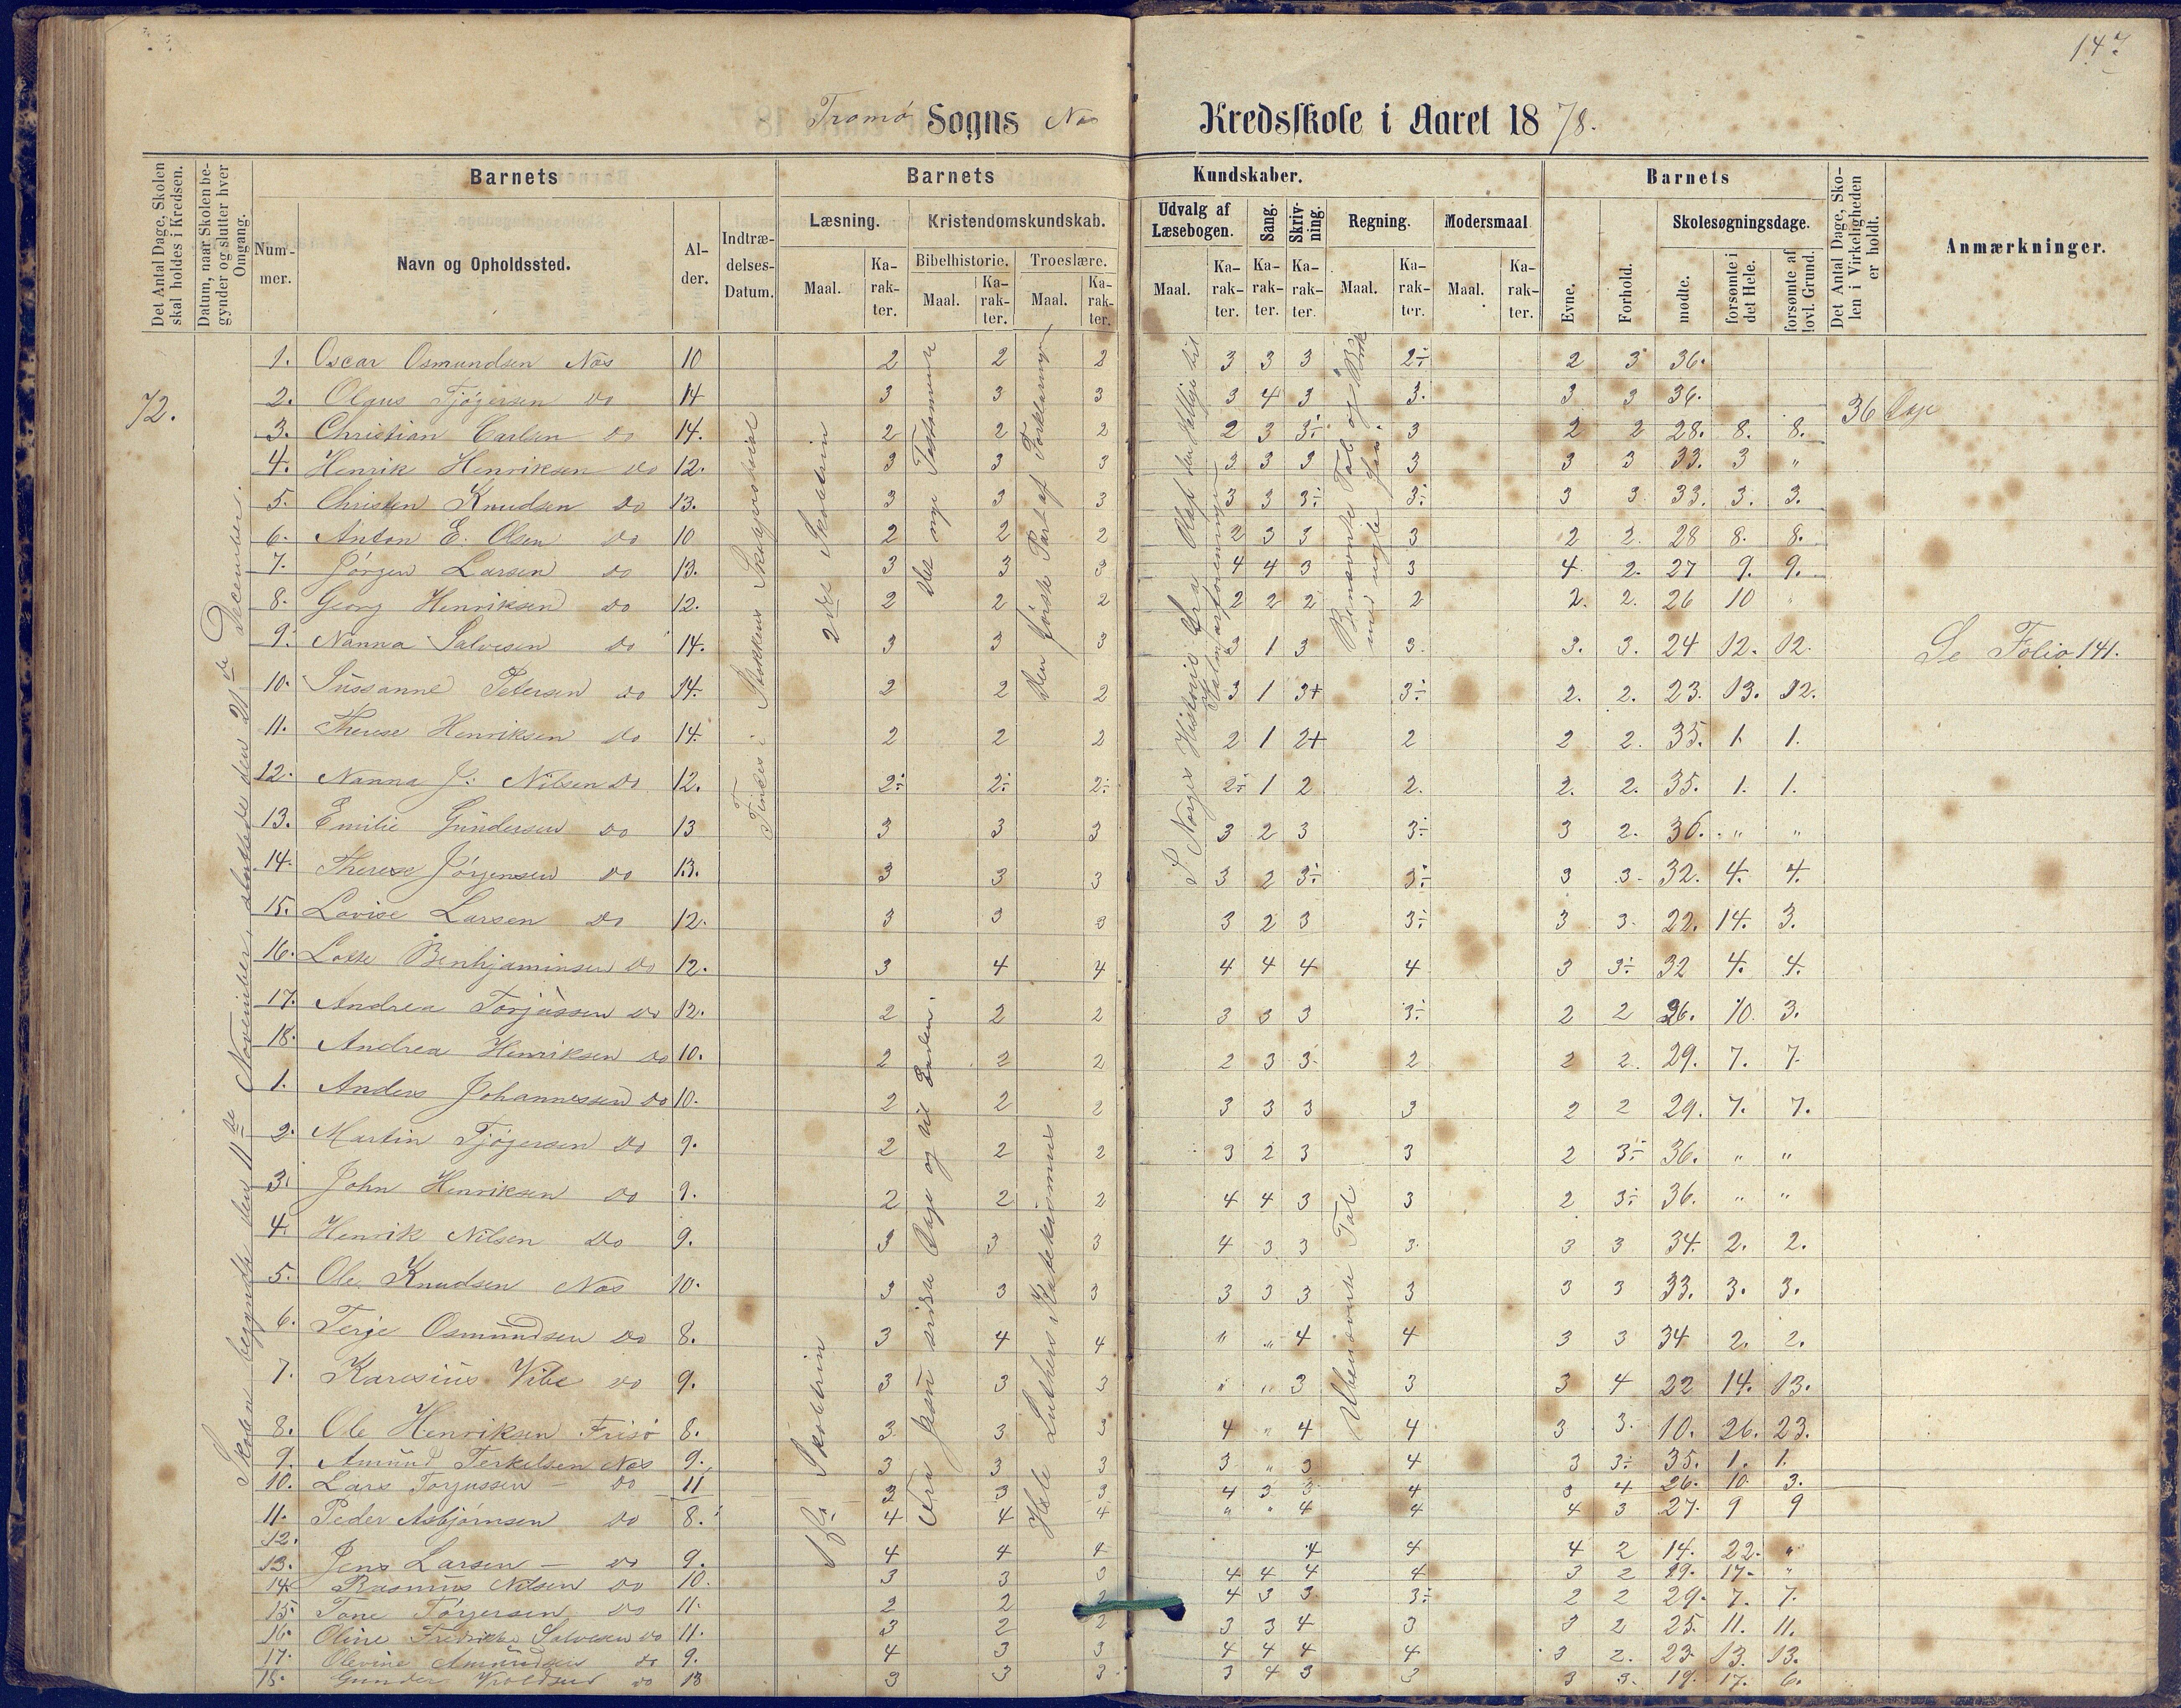 147.
Tromø Sogns Nes Kredsskole i Aaret 1878.
Det Antal Dage, Skolen skal holdes i Kredsen.
Datum, naar Skolen begynder og slutter hver Omgang.
Barnets
Nummer.
Navn og Opholdssted.
Alder.
Indtrædelses-Datum.
Barnets Kundskaber.
Læsning.
Maal. Karakter.
Kristendomskundskab.
Bibelhistorie. Troeslære.
Maal. Karakter. Maal. Karakter.
Udvalg af Læsebogen.
Maal. Karakter.
Sang. Karakter.
Skrivning. Karakter.
Regning.
Maal. Karakter.
Modersmaal
Maal. Karakter.
Barnets
Evne. Forhold.
Skolesøgningsdage.
mødte. forsømte i det Hele. forsømte af lovl. Grund.
Det Antal Dage, Skolen i Virkeligheden er holdt.
Anmærkninger.
72.
Skolen begyndte den 11te November, sluttede den 21de December.
Findes i Stokkens Skoleprotokol
2den Skoletrin
Det nye Testamente
Den første Part af Forklaringen
Norges Historie fra Olaf den Hellige til Kalmarforeningen
Benævnte Tal og Brøk
36 Dage
Se Folio 141.
1. Oscar Osmundsen Nes 10 2 2 2 3 3 3 2÷ 2 3 36.
2. Olaus Tjøgersen do 14 3 3 3 3 4 3 3. 3 3 36.
3. Christian Carlsen do 14. 2 2 2 2 3 3÷ 3 2 2 28. 8. 8.
4. Henrik Henriksen do 12. 3 3 3 3 3 3 3 3 3 33. 3 "
5. Christen Knudsen do 13. 3 3 3 3 3 3÷ 3÷ 3 3 33. 3. 3.
6. Anton E. Olsen do 10 2 2 2 2 3 3 3 2 2. 28 8. 8.
7. Jørgen Larsen do 13. 3 3 3 4 4 3 3 4 2. 27 9. 9.
8. Georg Henriksen do 12. 2 2 2 2 2 2 2 2. 2. 26 10 "
9. Nanna Salvesen do 14. 3 3 3 3 1 3 3. 3. 3. 24 12. 12.
10. Sussanne Petersen do 14. 2 2 2 3 1 3+ 3÷ 2. 2. 23. 13. 12.
11. Therese Henriksen do 14. 2 2 2 2 1 2+ 2 2 2. 35. 1. 1.
12. Nanna J. Nilsen do 12. 2÷ 2÷ 2÷ 2÷ 1 2 2. 2. 2. 35. 1. 1.
13. Emilie Gundersen do 13 3 3 3 3 2 3 3÷ 3 2. 36. " "
14. Therese Jørgensen do 13. 3 3 3 3 2 3÷ 3÷ 3 3. 32. 4. 4.
15. Lovise Larsen do 12. 3 3 3 3 2 3 3÷ 3 3. 22. 14. 3.
16. Lotte Benhjaminsen do 12. 3 4 4 4 4 4 4 3 3÷ 32 4. 4.
17. Andrea Torjussen do 12. 2 2 2 3 3 3 3÷ 2 2 26. 10. 3.
18. Andrea Henriksen do 10. 2 2 2 2 3 3 2 2 2. 29. 7. 7.
1ste Skoletrin
Fra Jesu sidste Dage og til Enden.
Hele Luthers Katekismus
Ubenævnte Tal
1. Anders Johannessen do 10. 2 2 2 3 3 3 3 2 2 29. 7. 7.
2. Martin Tjøgersen do 9. 2 2 2 3 2 3 3 2 3÷ 36. " "
3. John Henriksen do 9. 2 2 2 4 4 3 3 2 3÷ 36. " "
4. Henrik Nilsen do 9. 3 3 3 4 3 3 3. 3 3 34. 2. 2.
5. Ole Knudsen Nes 10. 3 3 3 3 3 3 3 3 3 33. 3. 3.
6. Terje Osmundsen do 8. 3 4 4 " " 4 4 3 3 34 2. 2.
7. Karesius Vibe do 9. 3 3 3 " " 3 3 3 4 22 14. 13.
8. Ole Henriksen Frisø 8. 3 3 3 4 " 4 4 3 3. 10. 26. 23.
9. Amund Terkelsen Nes 9. 3 3 3 3 " 3 4 3 3÷ 35. 1. 1.
10. Lars Torjussen do 11 3 3 3 4 3 3 4 3 4 26. 10. 3.
11. Peder Asbjørnsen do 8. 4 4 4 " " 4 4 4 3 27. 9 9
12.
13. Jens Larsen do 9. 4 4 4 4 4 4 2 14. 22. "
14. Rasmus Nilsen do 10. 3 3 3 4 4 4 4 3 2 19. 17. "
15. Tone Tørgersen do 11. 2 2 2 4 3 3 3÷ 2 2 29. 7. 7.
16. Oline Fredrikke Salvesen do 11. 3 2 2 3 3 4 3 3 2 25. 11. 11.
17. Olevine Amundsen do 9. 4 3 3 4 4 4 4 3 2. 23. 13. 13.
18. Gunder do 13 3 3 3 3 4 3 3 3 3. 19. 17. 6.